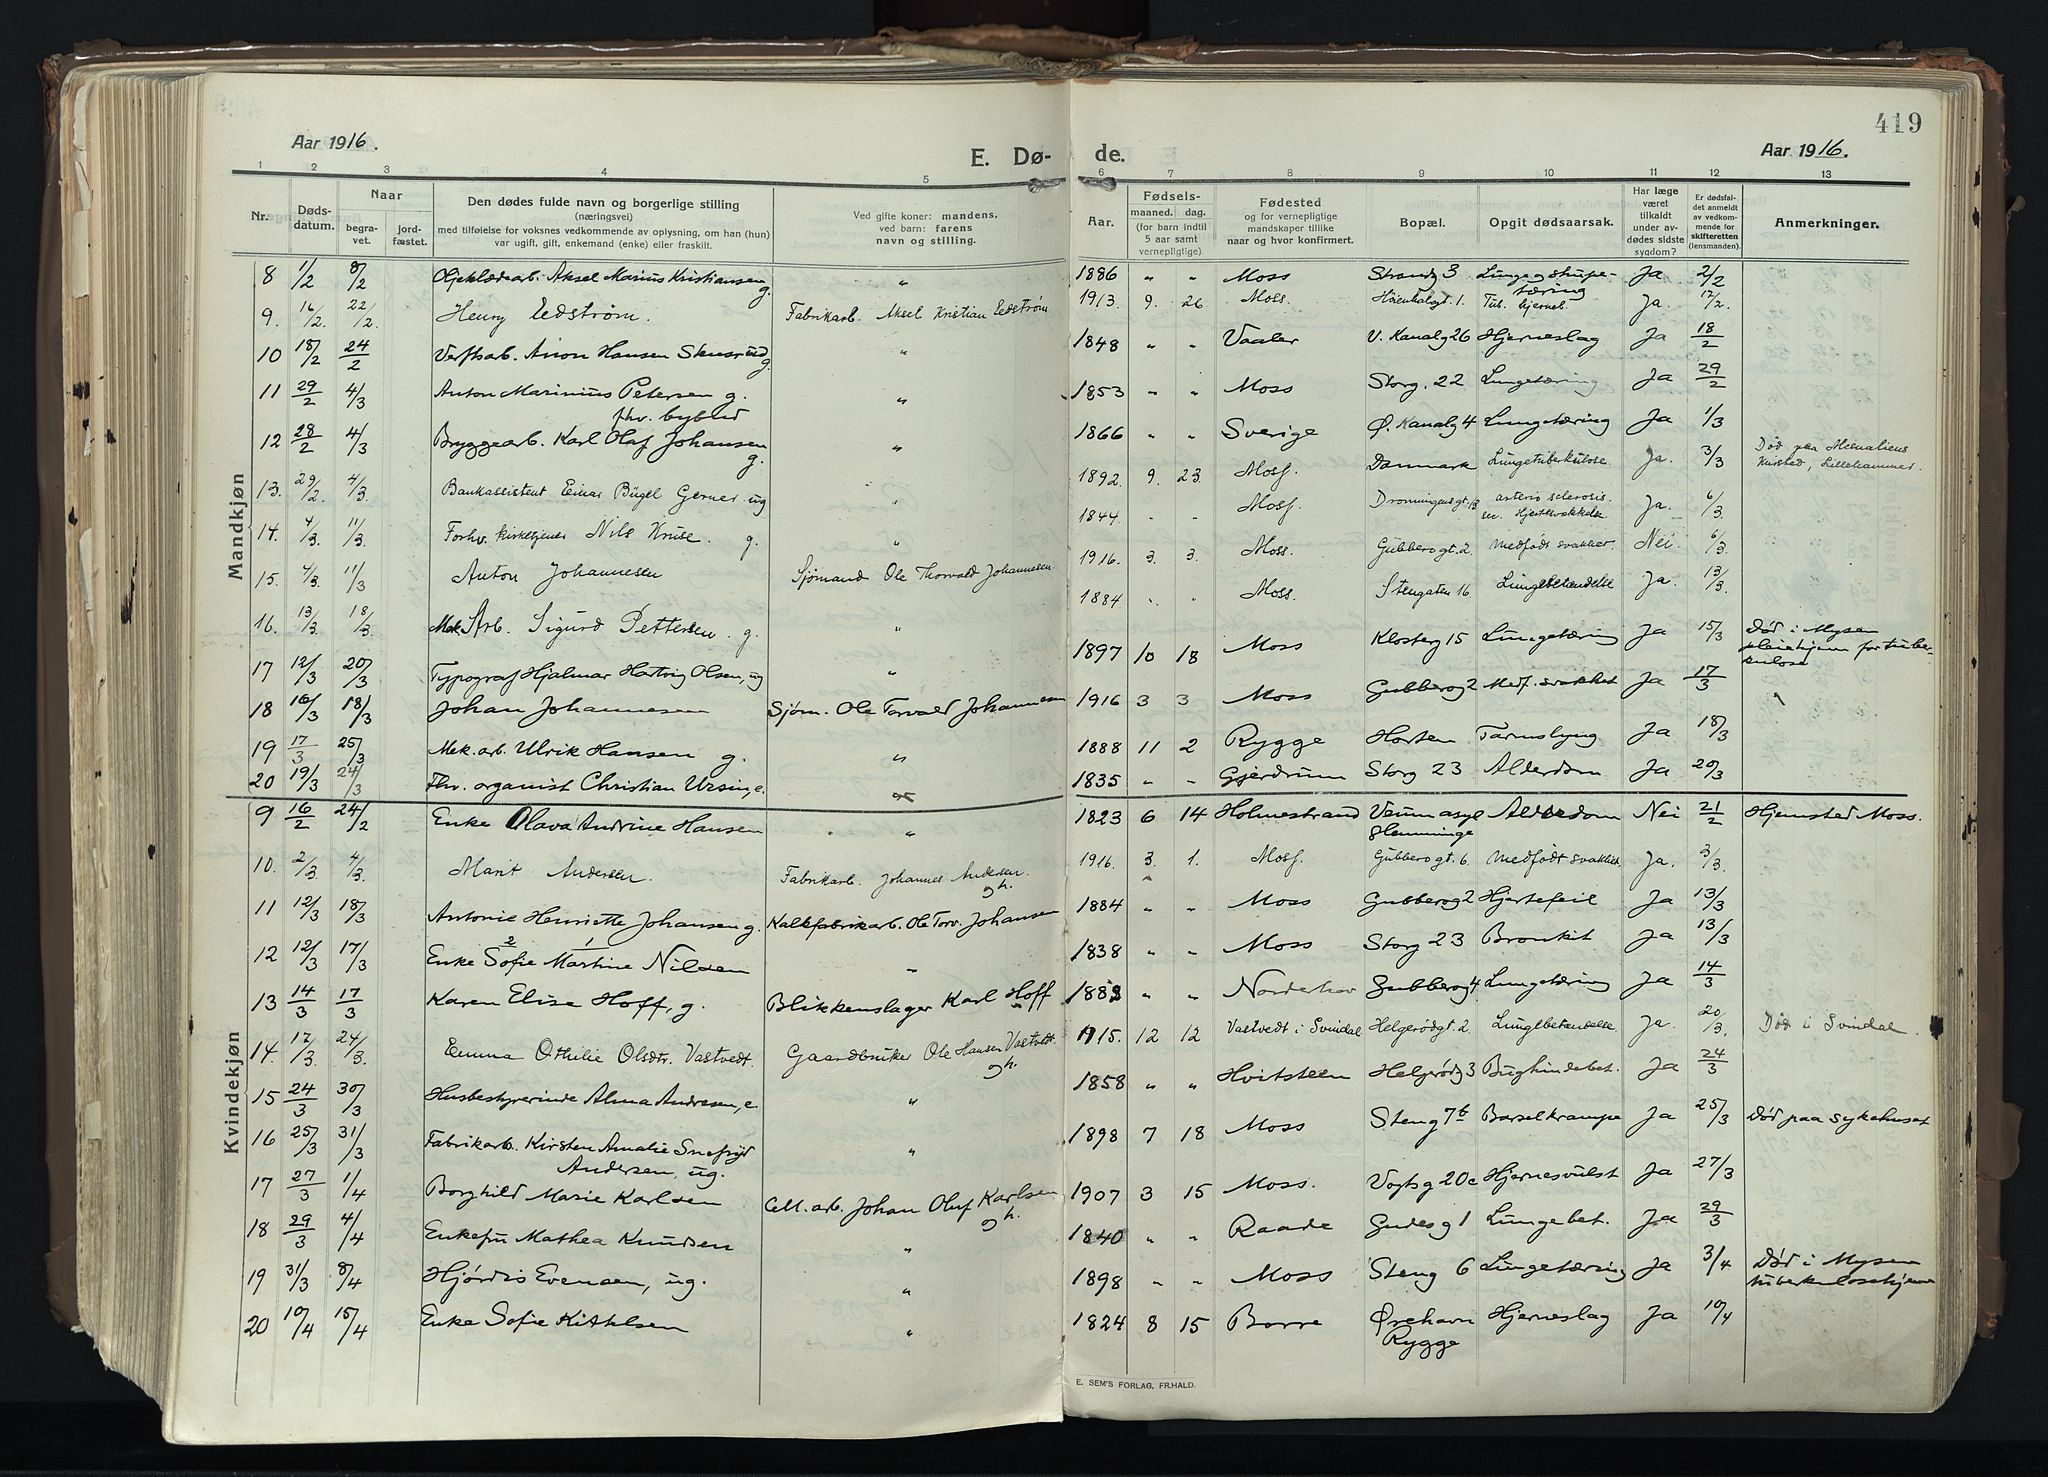 419
Aar 1916.
E. Dø- de.
Aar 1916.
1 2 3 4 5 6 7 8 9 10 11 12 13
Nr.
Døds-
datum.
Naar
begra-
vet.
jord-
fæstet.
Den dødes fulde navn og borgerlige stilling
(næringsvei)
med tilføielse for voksnes vedkommende av oplysning, om han (hun)
var ugift, gift, enkemand (enke) eller fraskilt.
Ved gifte koner: mandens,
ved barn: farens
navn og stilling.
Aar.
Fødsels-
maaned. dag.
(for barn indtil
5 aar samt
vernepligtige)
Fødested
og for vernepligtige
mandskaper tillike
naar og hvor konfirmert.
Bopæl.
Opgit dødsaarsak.
Har læge
været
tilkaldt
under av-
dødes sidste
sygdom?
Er dødsfal-
det anmeldt
av vedkom-
mende for
skifteretten
(lensmanden).
Anmerkninger.
Mandkjøn
8 1/2 8/2 Oljeklædearb. Aksel Marius Kristiansen g. " 1886 " " Moss Strandg 3 Lunge og strupe- Ja 2/2
tæring
9. 16/2. 22/2. Henry Eedstrøm. Fabrikarb. Aksel Kristian Eedstrøm 1913. 9. 26 Moss. Høienhalgt. 1. Tub. hjerneb. Ja. 17/2.
10 18/2 24/2 Verftsab. Anon Hansen Stensrud g. " 1848 " " Vaaler V. Kanalg 26 Hjerneslag Ja 18/2
11 29/2 4/3 Anton Marinius Petersen g. " 1853 " " Moss Storg. 22 Lungetæring Ja 29/2
fhv. bybud
12 28/2 4/3 Bryggearb. Karl Olaf Johansen g. " 1866 " " Sverige Ø. Kanalg 4 Lungetæring Ja 1/3
13. 29/2. 4/3. Bankassistent Einar Bügel Gerner. ug " 1892. 9. 23. Moss. Danmark Lungetuberkulose. Ja. 3/3 Død paa Mesnaliens
Kursted, Lillehammer.
14. 4/3. 11/3. Forhv. kirketjener Nils Kruse. g. " 1844. - - Moss. Dronningensgt. 13 arterio sclerosis. Ja. 6/3.
sen. Hjertesvækkelse.
15. 4/3. 11/3. Anton Johannesen Sjømand Ole Thorvald Johannesen 1916. 3. 3. Moss. Gubberogt. 2. Medfødt svakhet. Nei. 6/3.
16. 13/3. 18/3. Mek. Arb. Sigurd Pettersen. g. " 1884. " " Moss. Stengaten 16 Lungebetændelse Ja. 13/3.
17 12/3 20/3 Typograf Hjalmar Hartvig Olsen, ug " 1897 10 18 Moss Klosterg 15 Lungetæring Ja 15/3 Død i Mysen
pleiehjem for tuber-
kulose
18 16/3 18/3 Johan Johannesen Sjøm. Ole Torvald Johannesen 1916 3 3 Moss Gubberog 2 Medf. svakhet Ja 17/3
19 17/3 25/3 Mek. arb. Ulrik Hansen g. " 1888 11 2 Rygge Horten Tarmslyng Ja 18/3
20 19/3 24/3 Fhv. organist Christian Ursin, e. " 1835 " " Gjerdrum Storg 23 Alderdom Ja 20/3
Kvindekjøn
9 16/2 24/2 Enke Olava Andrine Hansen " 1823 6 14 Holmestrand Veum asyl Alderdom Nei 21/2 Hjemsted Moss.
Glemminge
10. 2/3. 4/3. Marit Andersen. Fabrikarb. Johannes Andersen. 1916. 3. 1. Moss. Gubberogt. 6 Medfødt svakhet. Ja. 3/3.
11 12/3 18/3 Antonie Henriette Johansen g. Kalkfabrikarb. Ole Torv. Johansen 1884 " " Moss Gubberog 2 Hjertefeil Ja 13/3
12 12/3 17/3 Enke Sofie Martine Nilsen " 1838 " " Moss Storg 23 Bronkit Ja 13/3
13 14/3 17/3 Karen Elise Hoff, g. Blikkenslager Karl Hoff 1883 " " Norderhov Gubberog 4 Lungetæring Ja 14/3
14. 17/3. 24/3. Emma Othilie Olsdtr. Vastvedt. Gaardbruker Ole Hansen Vastvedt. 1915. 12 12 Vastvedt i Svindal Helgerødgt. 2 Lungebetændelse Ja. 20/3. Død i Svindal.
15 24/3 30/3 Husbestyrerinde Alma Andresen, e. " 1858 " " Hvitsteen Helgerødg 3 Bughindebet. Ja 24/3
16 25/3 31/3 Fabrikarb. Kirsten Amalie Snefryd " 1898 7 18 Moss Steng 7b Barselkrampe Ja 25/3 Død paa sykehuset
Andersen, ug.
17 27/3 1/4 Borghild Marie Karlsen Cell. arb. Johan Oluf Karlsen 1907 3 15 Moss. Vogtsg 20c Hjernesvulst Ja 27/3
18 29/3 4/4 Enkefru Mathea Knudsen " 1840 " " Raade Gudesg 1 Lungebet. Ja 29/3
19 31/3 8/4 Hjørdis Evensen, ug. " 1898 " " Moss Steng 6 Lungetæring Ja 3/4 Død i Mysen
tuberkulosehjem
20 10/4 15/4 Enke Sofie Kittelsen " 1824 8 15 Borre Ørehavn Hjerneslag Ja 10/4
Rygge
E. SEM'S FORLAG, FR.HALD.